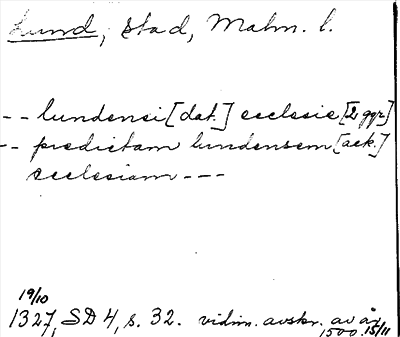 Lund, stad, Malm. l.
-- lundensi [dat.] ecclesie [2 ggr]
-- predictam lundensem [ack.]
ecclesiam ---
19/10
1327, SD 4, s. 32. vidim. avskr. av år
1500 15/11